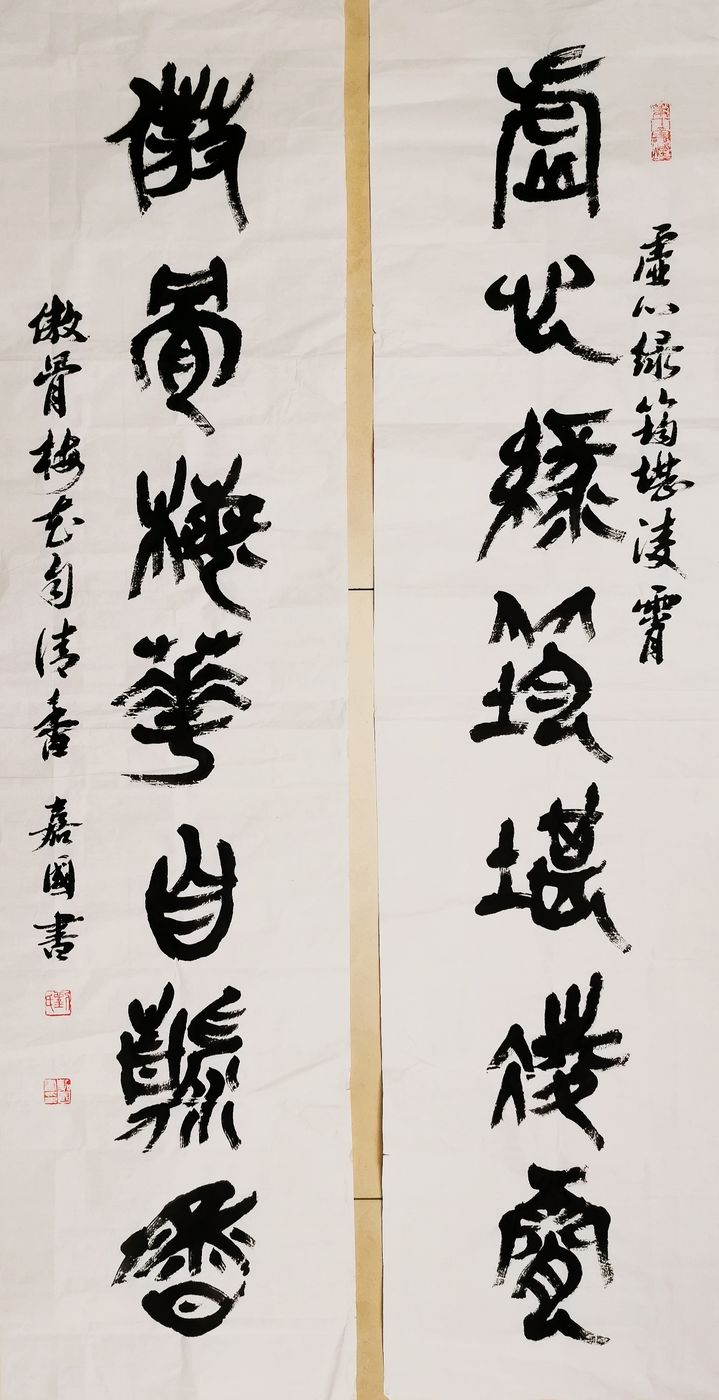 虛心綠筠堪凌霄
虛心緑筠堪凌霄
傲骨梅華自清香
傲骨梅花自清香 嘉國書